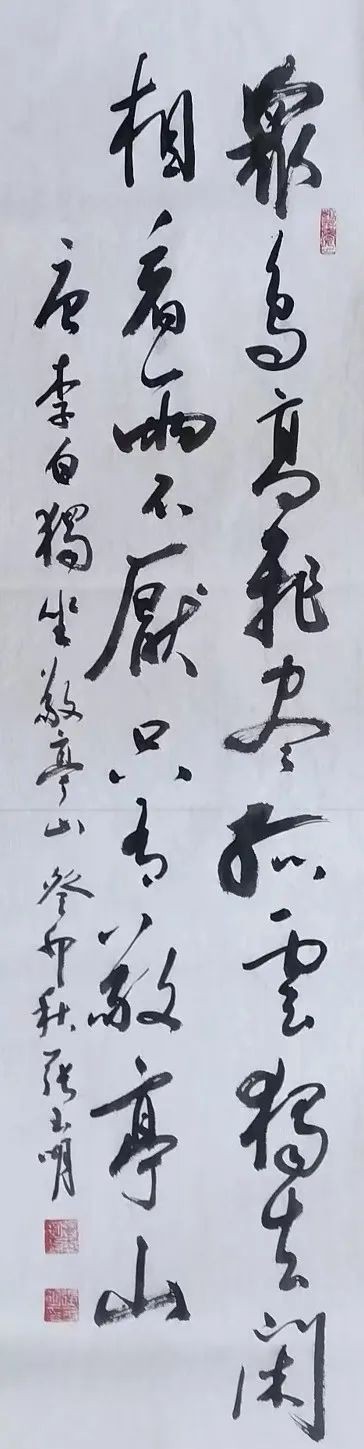 眾鳥高飛盡孤雲獨去閑
相看兩不厭只有敬亭山
唐李白獨坐敬亭山 癸卯秋 張玉明